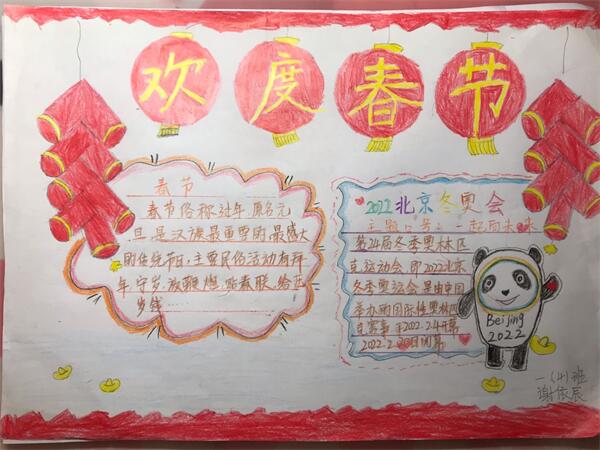 欢度春节
春节
春节俗称过年,原名元
旦是汉族最重要的,最盛大
的传统节日,主要民俗活动有拜
年守岁,放鞭炮,贴春联,给压
岁钱
2022北京冬奥会
主题口号:一起向未来
第24届冬季奥林匹
克运动会,即2022北京
冬季奥运会,是由中国
举办的国际性奥林匹
克赛事,于2022.2.4开幕
2022.2.20日闭幕
Beijing
2022
一(4)班
谢依辰